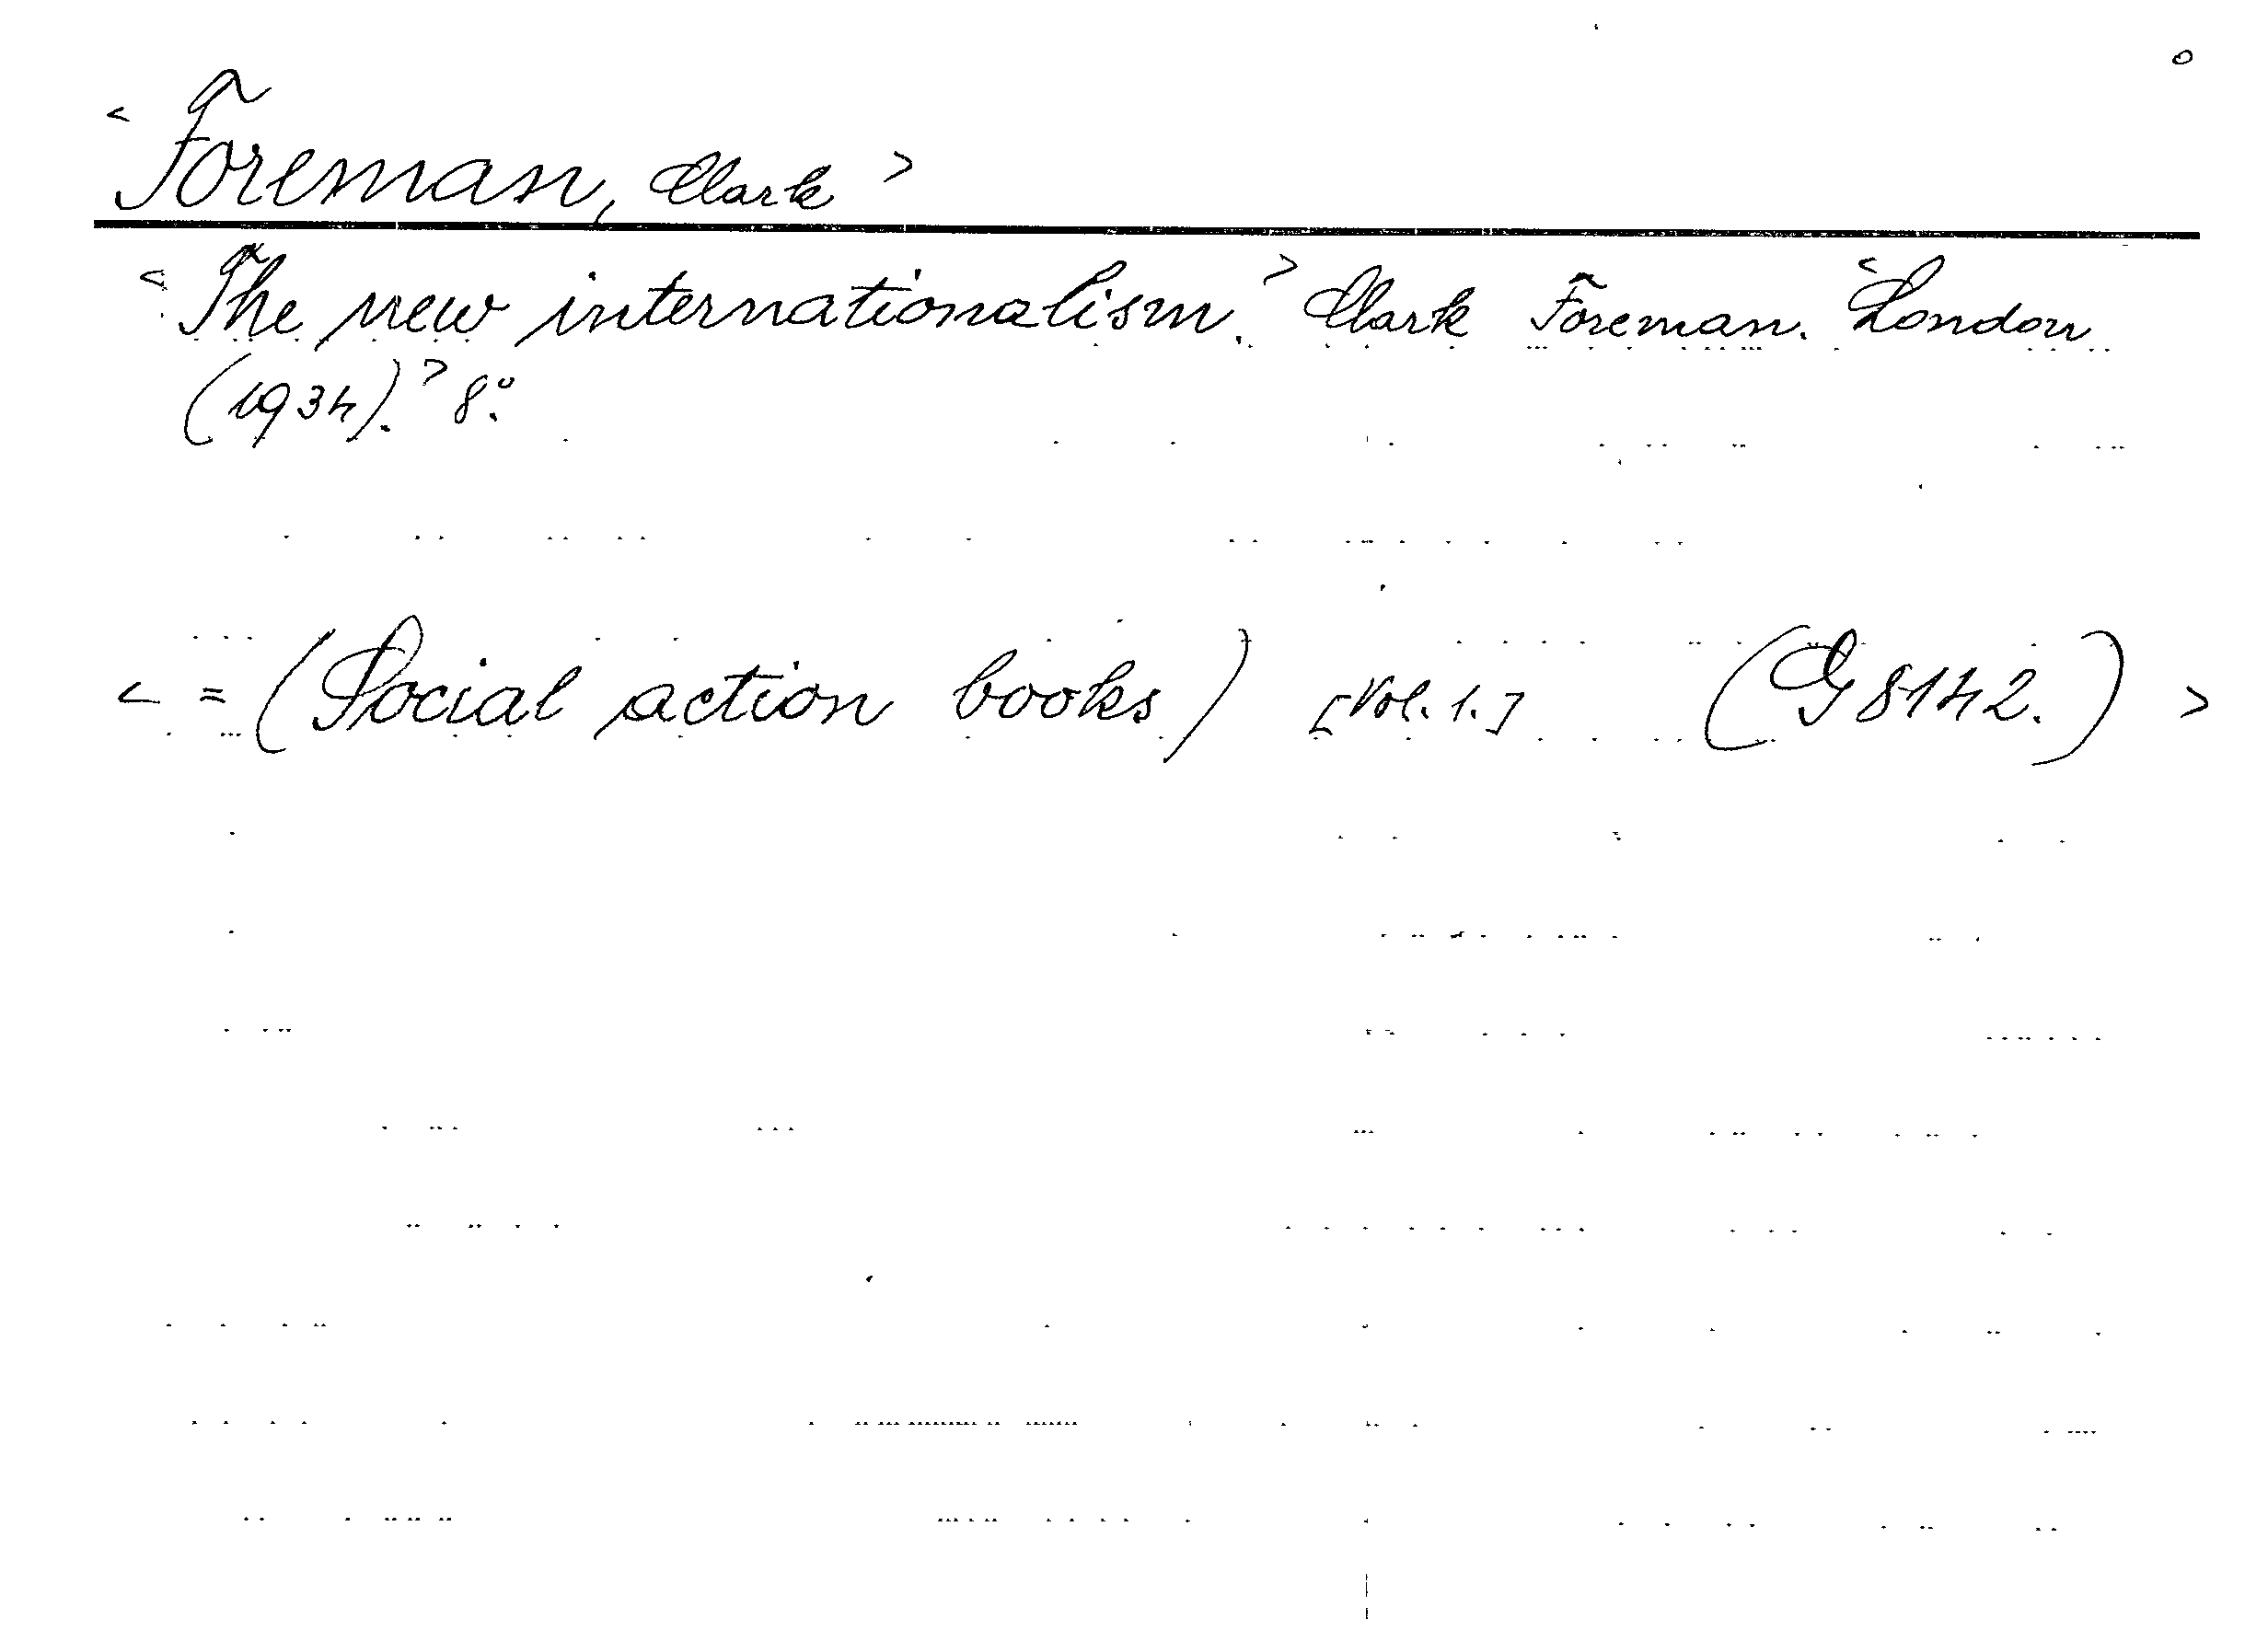 < Foreman, Clark >
< The new internationalism. > Clark Foreman. < London
(1934). > 8°.
< = (Social action books) [Vol. 1.] (G 8142.) >